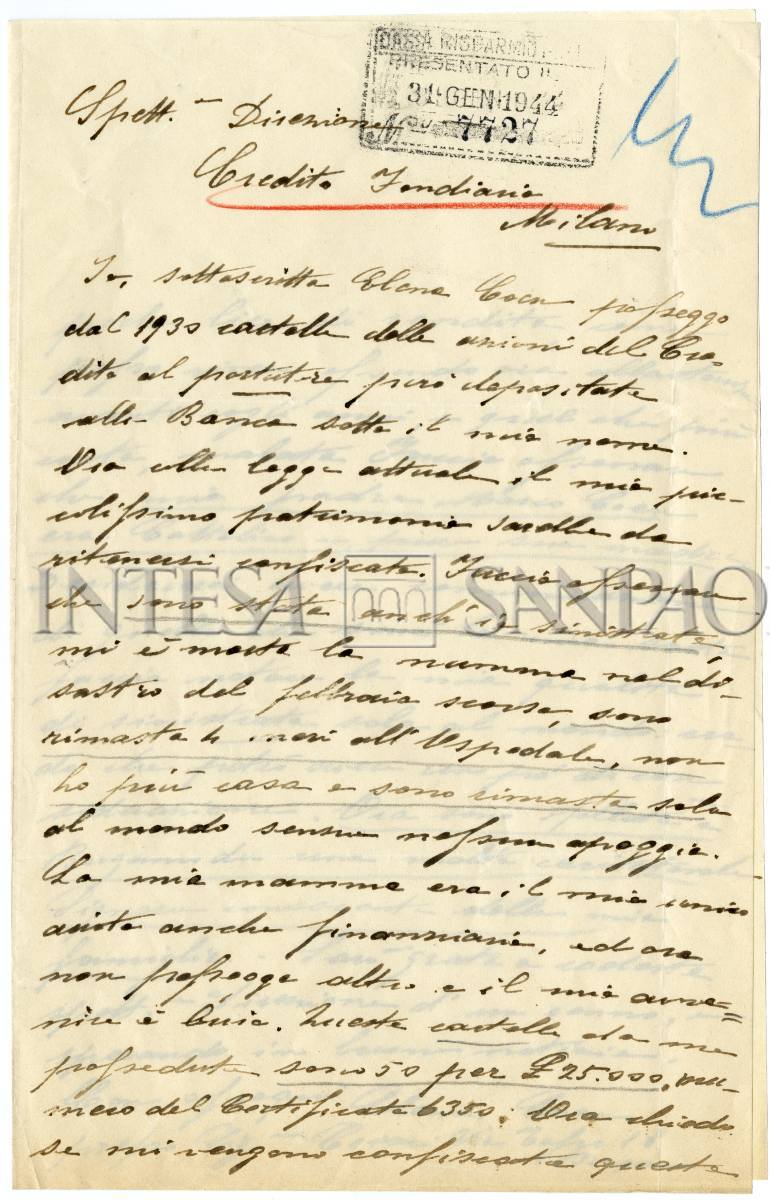 CASSA RISPARMIO
PRESENTATO IL
31 GEN 1944
7727
Spett. Direzione
Credito Fondiario
Milano
Io, sottoscritta Elena Coen posseggo
dal 1930 cartelle delle azioni del Cre-
dito al portatore però depositate
alla Banca sotto il mio nome.
Ora colla legge attuale il mio pic-
colissimo patrimonio sarebbe da
ritenersi confiscato. Faccio osservare
che sono stata anch'io sinistrata,
mi è morta la mamma nel di-
sastro del febbraio scorso, sono
rimasta 4 mesi all'Ospedale, non
ho più casa e sono rimasta sola
al mondo senza nessun apoggio.
La mia mamma era il mio unico
aiuto anche finanziario, ed ora
non posseggo altro e il mio avve=
nire è buio. Queste cartelle da me
possedute sono 50 per £ 25.000, nu-
mero del Certificato 6350. Ora chiedo
se mi vengono confiscate queste
INTESA SANPAOLO